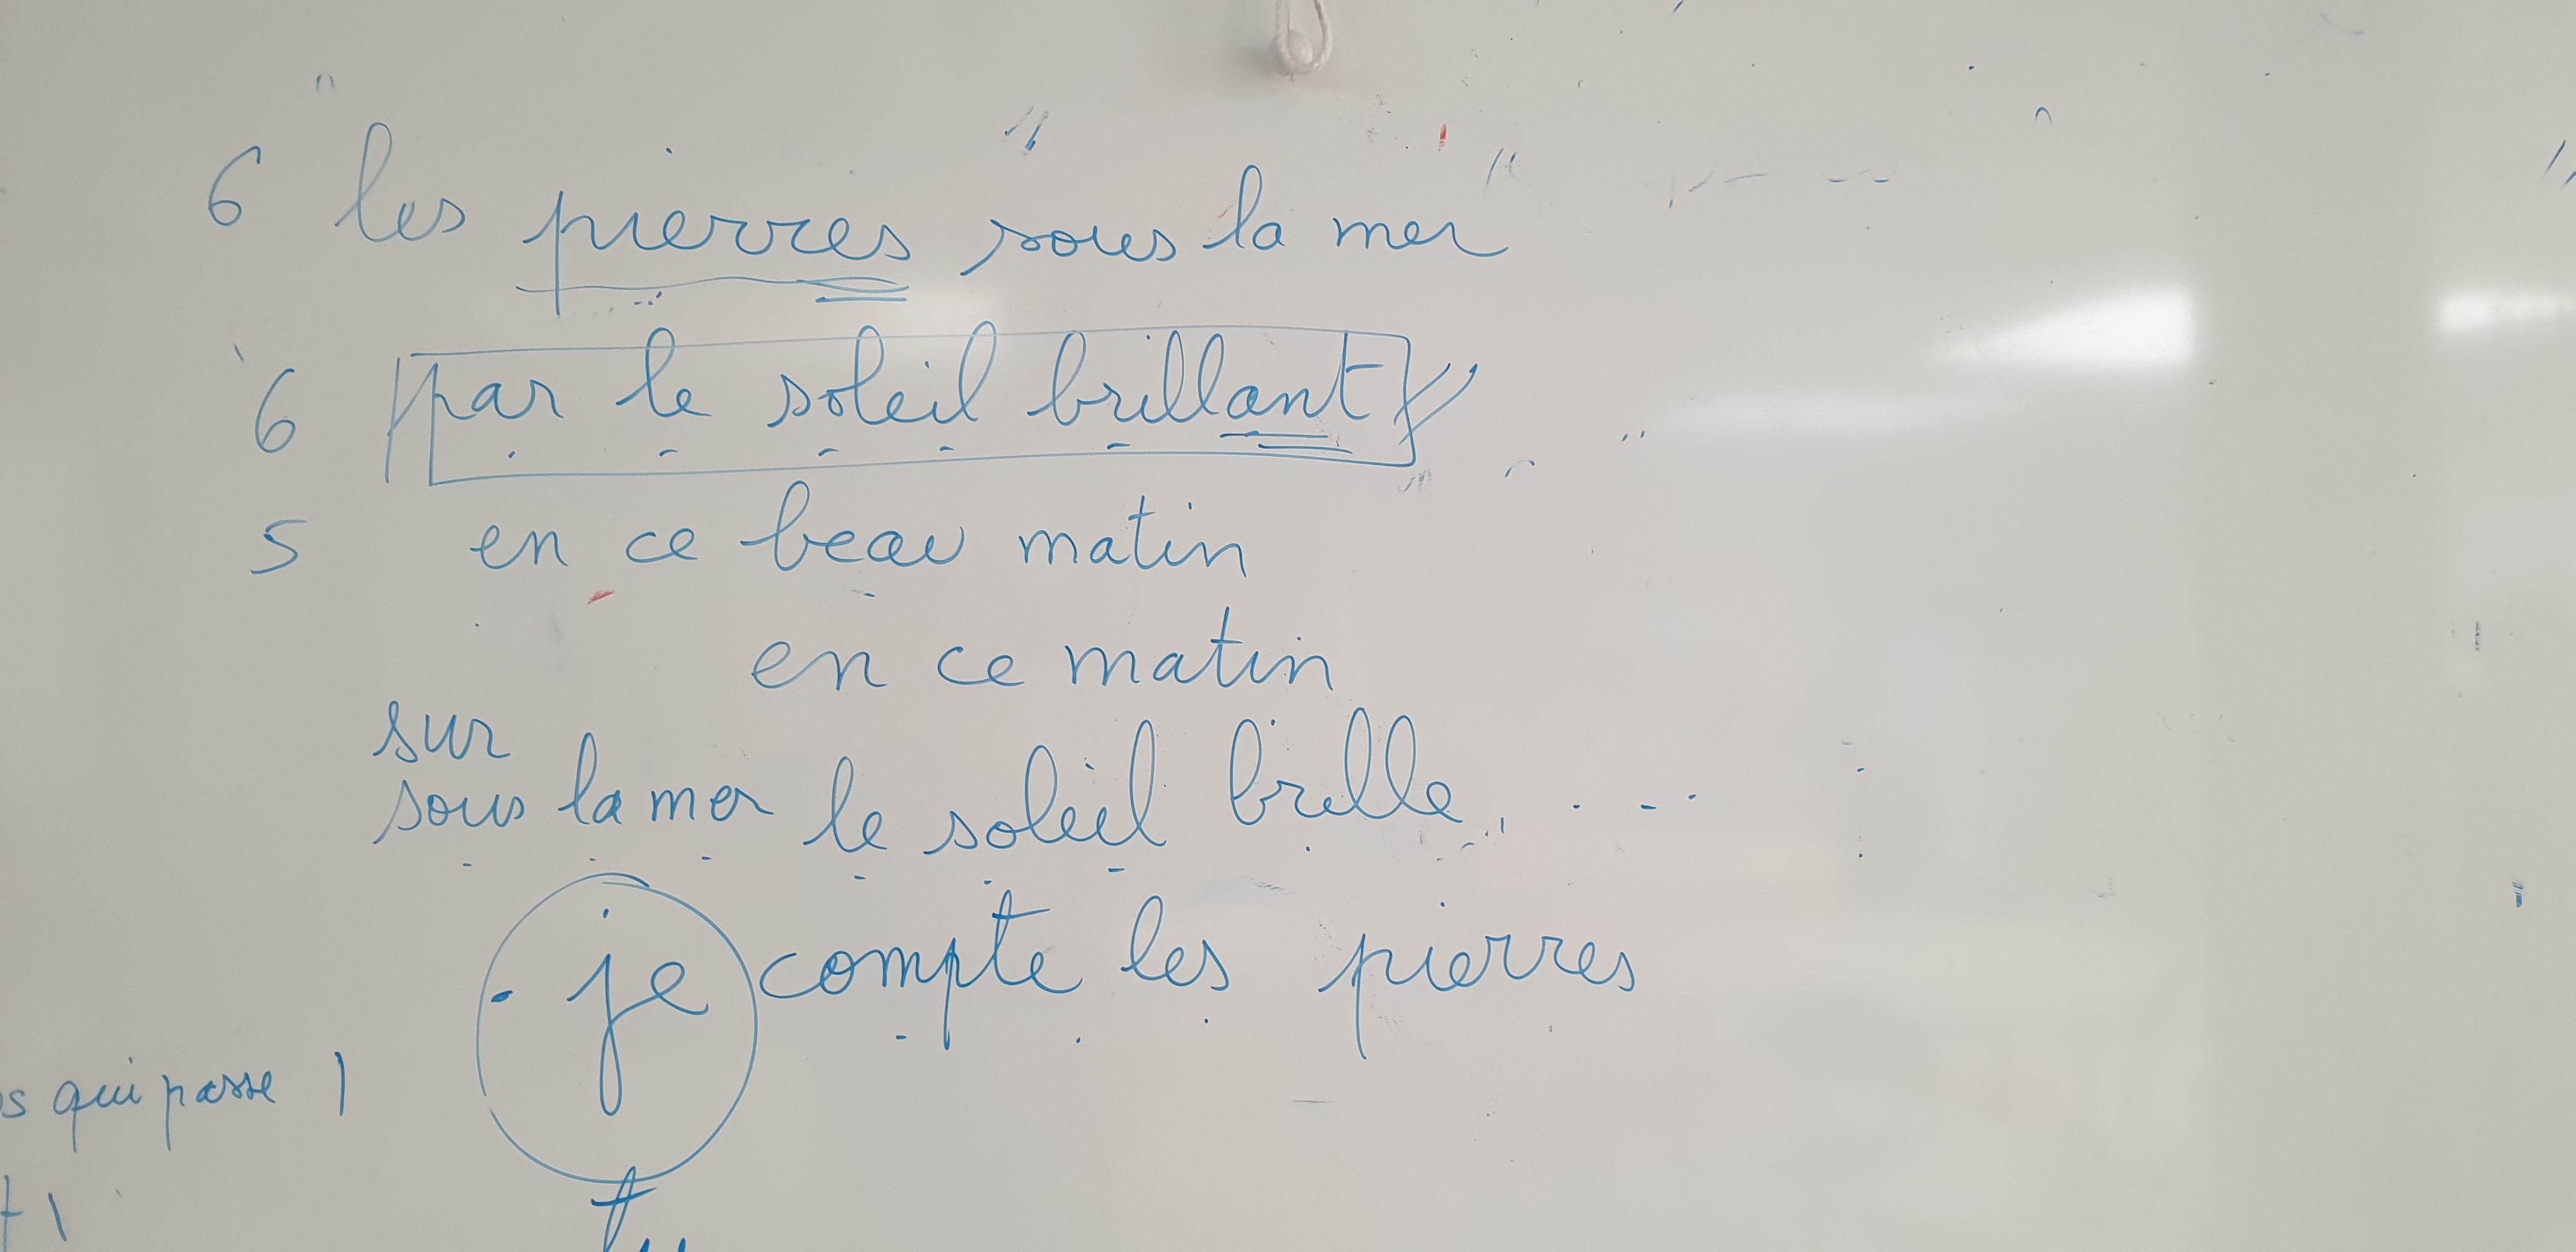 6 les pierres sous la mer
6 par le soleil brillant
5 en ce beau matin
en ce matin
sur
sous la mer le soleil brille
je compte les pierres
s qui passe 1
tu